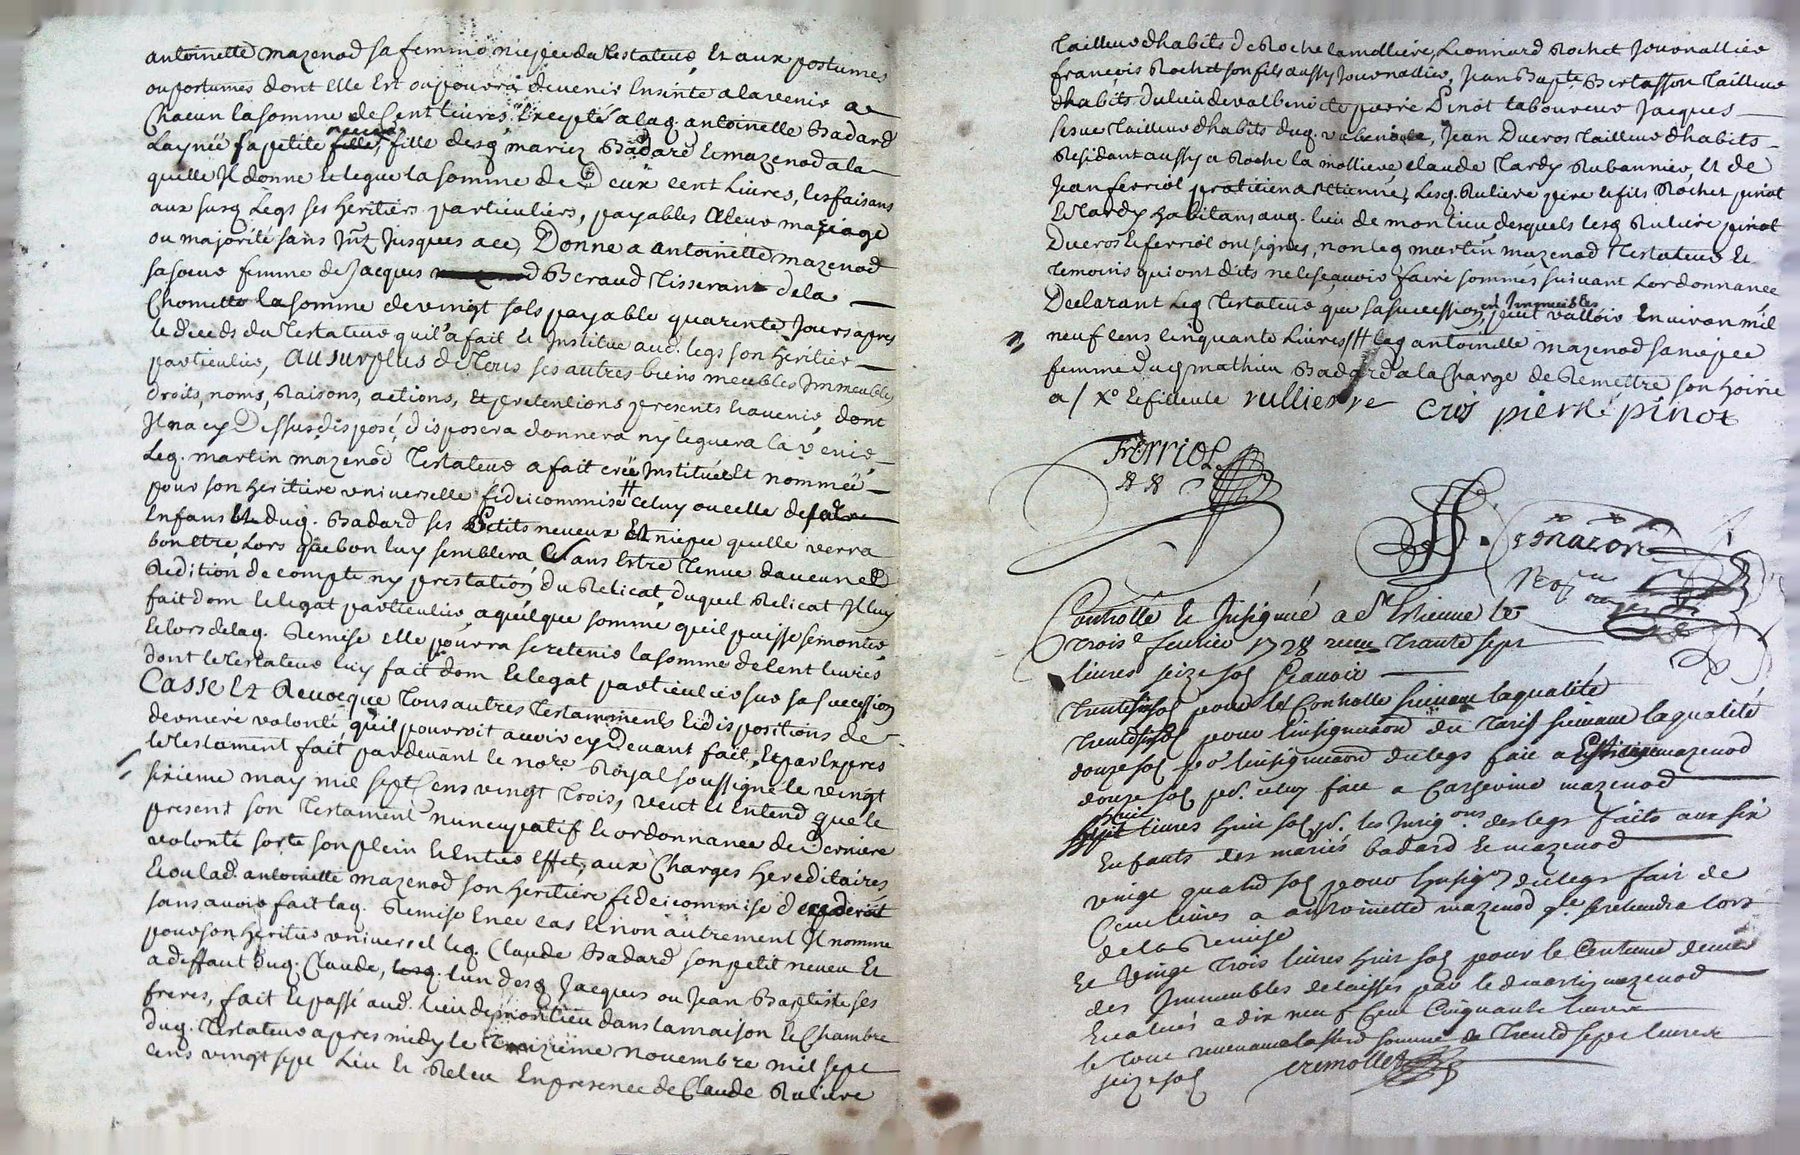 antoinette mazenod sa femme niepce du testateur, Et aux postumes
ou postumes dont elle Est ou pourra devenir Ensinte a lavenir a
Chacun la somme de Cent livres, Excepté a laq. antoinette Badard
Laynée sa petite niepce, fille desq. mariez Badard Et mazenod a la
quelle Jl donne Et legue la somme de Deux cent Livres, les faisans
aux susq. Legs ses heritiers particuliers, payables a leur mariage
ou majorité sans Jnt. Jusques a ce, Donne a antoinette mazenod
sa soeur femme de Jacques Beraud tisserant de la
Chomette la somme de vingt sols payable quarente Jours apres
le deceds du testateur quil a fait Et Jnstitue aud. legs son heritier
particulier, Au surplus de Tous ses autres biens meubles Jmmeubles
droits, noms, Raisons, actions, Et pretentions presents Et avenir, dont
Jl na cy Dessus disposé, disposera donnera ny leguera a lavenir,
Leq. martin mazenod Testateur a fait créé Jnstitué Et nommé
pour son heritiere universelle fideicommise # celuy ou celle de
Enfans dud. Badard ses Petits neveux Et niepce quelle verra
bon Etre Lors que bon luy semblera, sans Estre Tenue daucune
Redition de compte ny prestation du Relicat duquel Relicat Jl luy
fait dom Et legat particulier a quelque somme quil puisse se monter,
Et lors delaq. Remise elle pourra se retenir la somme de Cent livres
dont le testateur luy fait dom Et legat particulier sur sa succession
Casse Et Revocque Tous autres Testaments Et dispositions de
derniere volonté quil pourroit avoir cy Devant fait, Et par Expres
le testament fait pardevant le nore. Royal soussigné le vingt
sixieme may mil sept Cens vingt Trois, veut Et Entend que le
present son Testament nuncupatif Et ordonnance de Derniere
volonté sorte son plein Et Entier Effet, aux Charges hereditaires
Et ou lad. antoinette mazenod son heritiere fideicommise decederoit
sans avoir fait laq. Remise En ce cas Et non autrement Jl nomme
pour son heritier universel leq. Claude Badard son petit neveu Et
a deffaut dud. Claude, lun desq. Jacques ou Jean Baptiste ses
freres, fait Et passé aud. lieu de montieu dans la maison Et Chambre
dud. Testateur apres midy le Treizieme novembre mil sept
Cens vingt sept Leu Et Releu En presence de Claude Ruliere
tailleur dhabits de Roche la molliere, Leonnard Rochet Journallier
francois Rochet son fils aussy Journallier, Jean Bapte. Bertasson tailleur
dhabits du lieu de valbenoite pierre Pinot laboureur Jacques
tailleur dhabits dud. valbenoite, Jean Ducros tailleur dhabits
Residant aussy a Roche la molliere claude tardy Rubannier, Et de
Jean ferriol praticien a St Etienne, Lesq. Ruliere pere Et fils Rochet pinot
Et tardy habitans aud. lieu de montieu desquels lesq. Ruliere pinot
Ducros Et ferriol ont signés, non leq. martin mazenod Testateur Et
temoins qui ont dits ne le scavoir faire sommés suivant Lordonnance
Declarant Leq. testateur que sa succession en Jmmeubles peut valloir Environ mil
neuf cens Cinquante Livres /# laq. antoinette mazenod sa niepce
femme dud. mathieu Badard a la Charge de Remettre son hoirie
a / Xo. Et filleule rullierre Cros pierre pinot
Ferriol
mazon
Controllé Et Jnsinué a St Etienne le
trois fevrier 1728 receu Trante sept
livres seize sols scavoir
pour le Controlle suivant la qualité
pour linsinuaon du tarif suivant la qualité
douze sols pr. linsinuaon du legs fait a mazenod
douze sols pr. celuy fait a Catherine mazenod
huit livres huit sols pr. les Jnsinons. des legs faits aux six
Enfants des mariés badard Et mazenod
vingt quatre sols pour Linsinon du legs fait de
Cent livres a antoinette mazenod qle. se retiendra lors
de la Remise
Et Vingt Trois livres huit sols pour le Centieme denier
des Jmmeubles delaisses par led. martin mazenod
Evalués a dix neuf Cent Cinquante livres
le tout revenant a lad. somme de Trente sept livres
seize sols cremollet